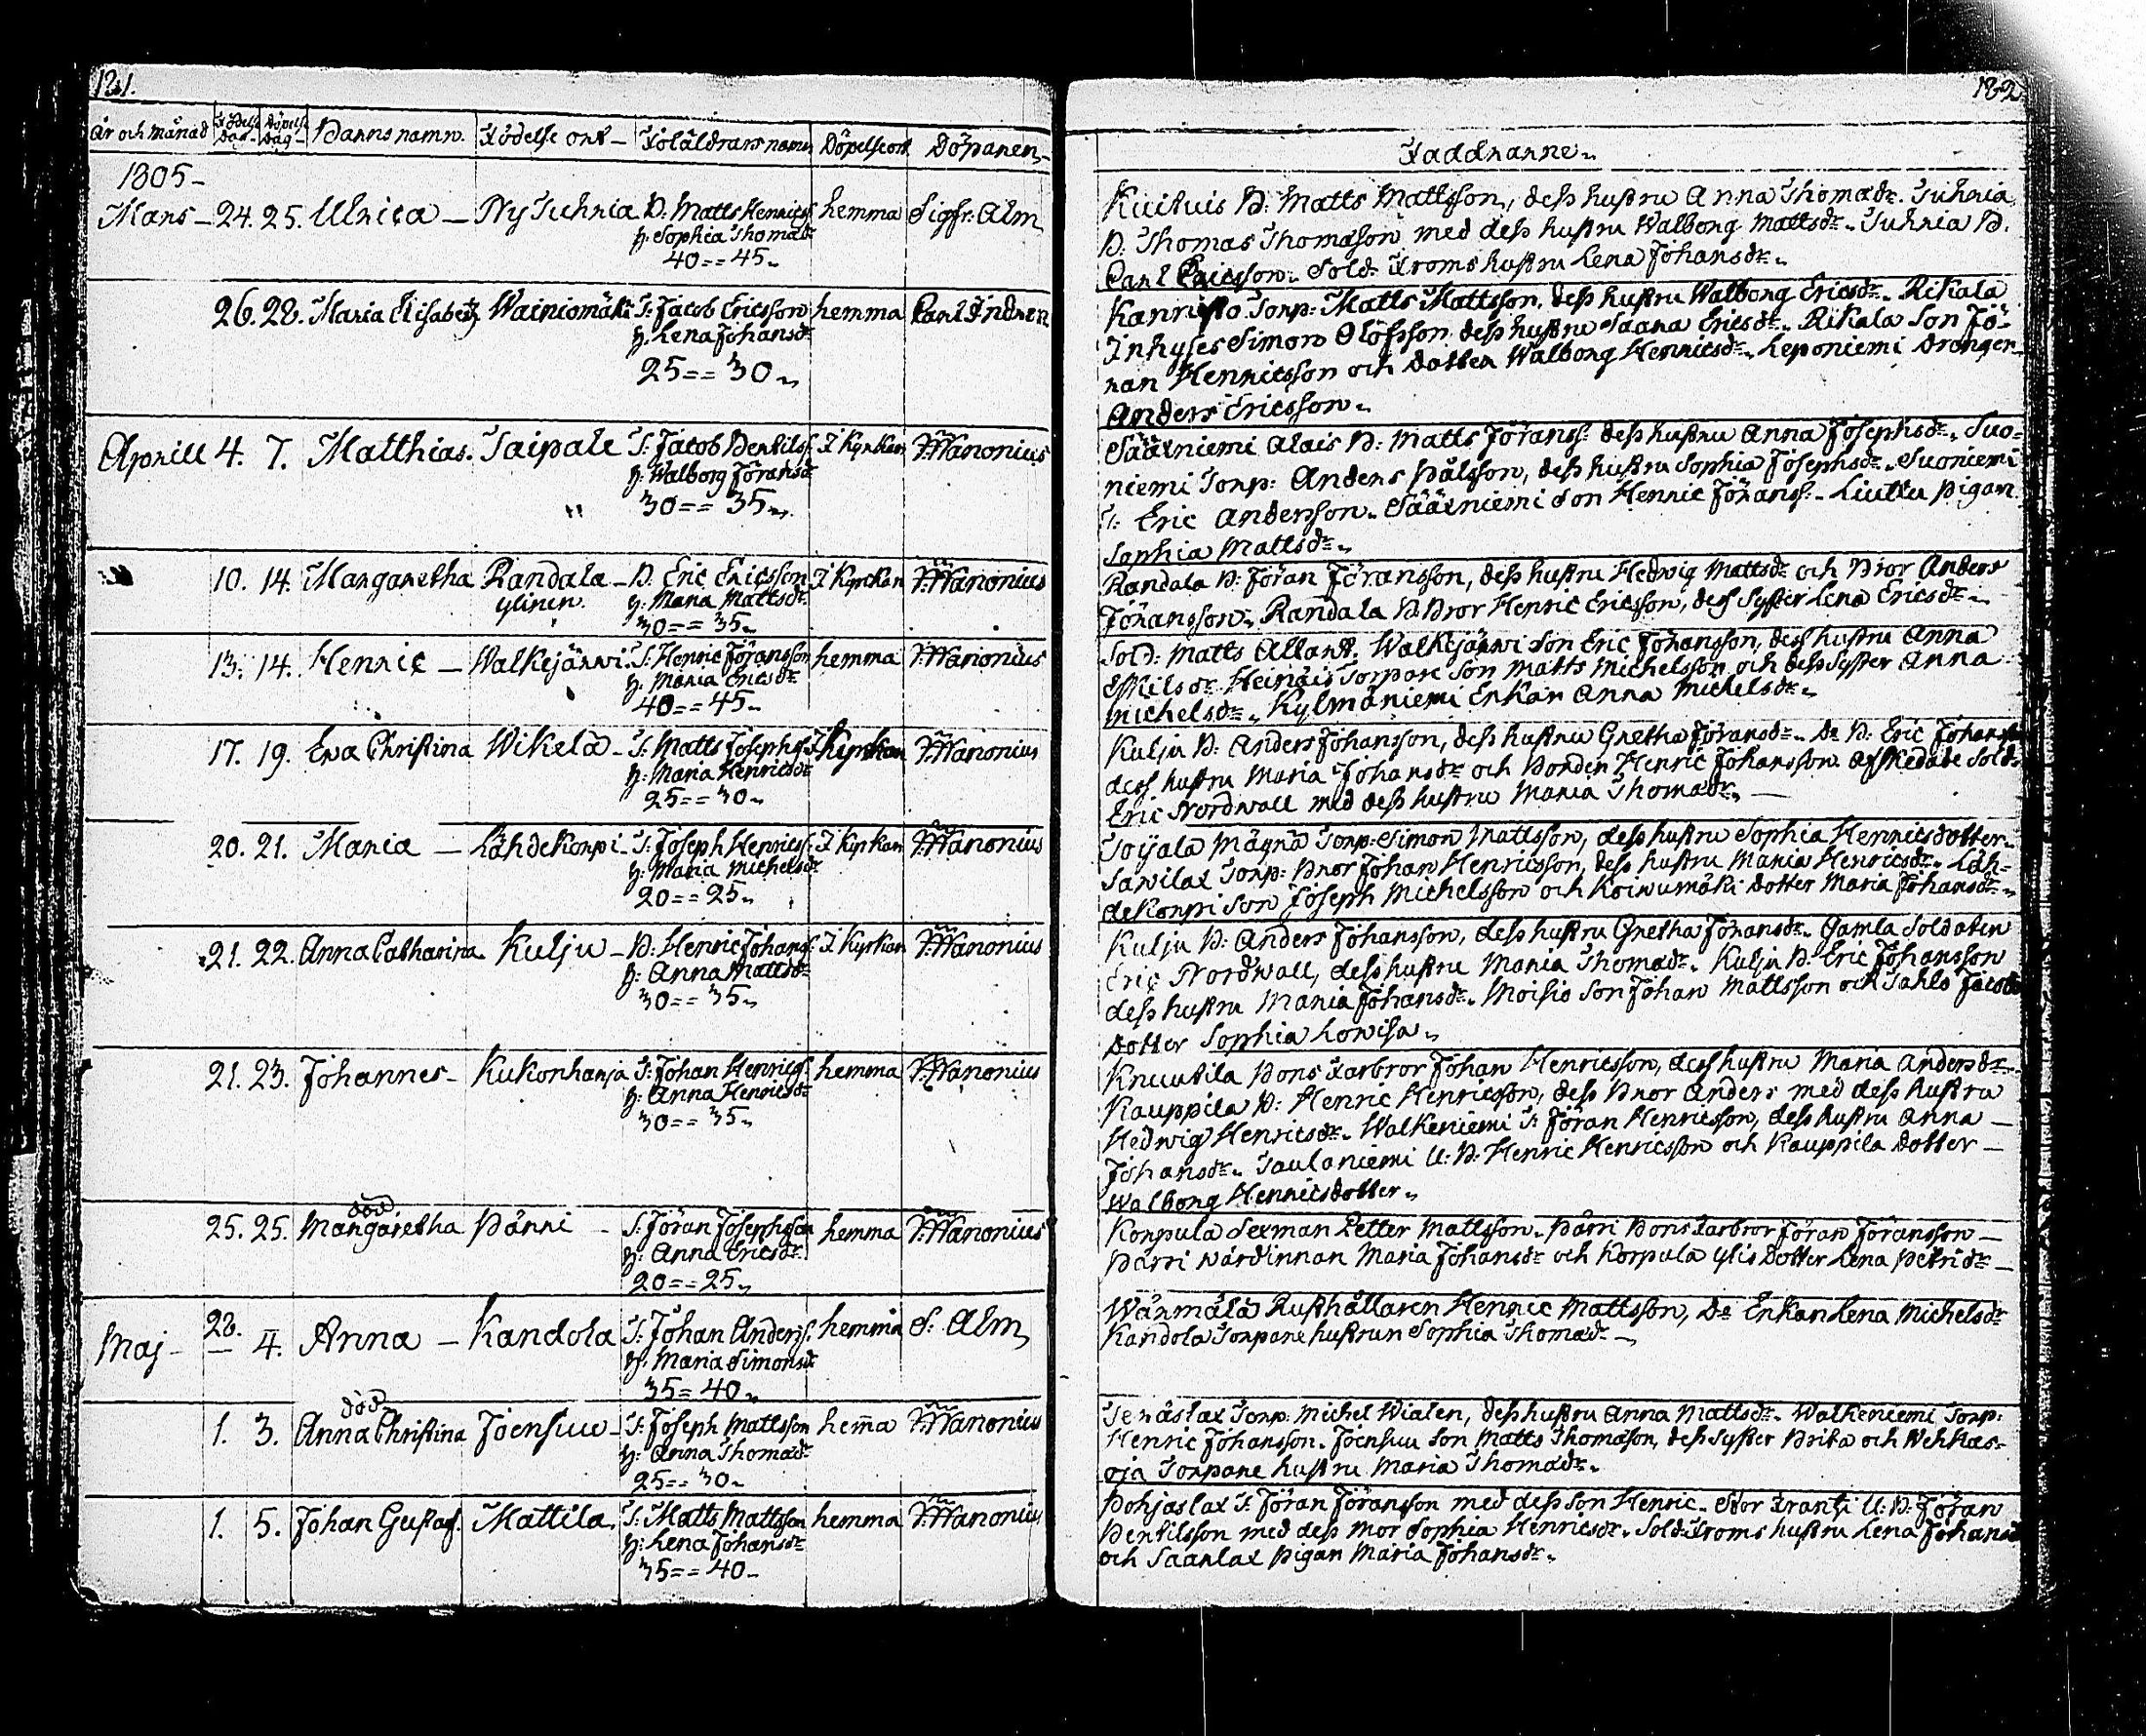 121.
År och månad Födelse Dag Döpelse Dag Barns namn. Födelse ort Föräldrars namn Döpelseort Döparen
1805
Mars 24. 25. Ulrica Ny Juhnia B. Matts Henricss. hemma Sigfr. Alm
h. Sophia Thomadr
40 == 45
26. 28. Maria Elisabeth Wainiomäki T: Jacob Ericsson hemma Carl Indren
h. Lena Johansdr
25 == 30
Aprill 4. 7. Matthias. Taipale T: Jacob Bertilss. I Kyrkan J: Wanonius
h: Walborg Göransdr
30 == 35
10. 14. Margaretha Randala B. Eric Ericsson I Kyrckan J: Wanonius
ylinen. h: Maria Mattsdr
30 == 35
13. 14. Henric Walkejärwi T: Henric Jöransson hemma J: Wanonius
h. Maria Ericsdr
40 == 45
17. 19. Eva Christina Wikelä T. Matts Josephss. I Kyrkan J: Wanonius
h: Maria Henricsdr
25 == 30
20. 21. Maria Lähdekorpi T: Joseph Henricss. I Kyrkan J: Wanonius
h: Maria Michelsdr
20 == 25
21. 22. Anna Catharina Kulju B: Henric Johanss. I Kyrkan J: Wanonius
h: Anna Mattsdr
30 == 35
21. 23. Johannes Kukonharja T: Johan Henricss. hemma J: Wanonius
h: Anna Henricsdr
30 == 35
död
25. 25. Margaretha Pärri T. Jöran Josephsson hemma J: Wanonius
h: Anna Ericsdr
20 == 25
Maj 28. 4. Anna Kandola T: Johan Anderss. hemma S: Alm
h: Maria Simonsdr
35 = 40
död
1. 3. Anna Christina Joensuu T: Joseph Mattsson hema J: Wanonius
h: Anna Thomadr
25 == 30
1. 5. Johan Gustaf. Mattila. T: Matts Mattsson hemma J: Wanonius
h: Lena Johansdr
35 == 40
182
Faddrarne
Kuituis B: Matts Mattsson, dess hustru Anna Thomadr. Juhnia
B. Thomas Thomasson med dess hustru Walborg Mattsdr. Juhnia B.
Carl Ericsson. Sold: Froms hustru Lena Johansdr.
Kanristo Torp: Matts Mattsson, dess hustru Walborg Ericsdr. Rikala
Inhyses Simon Olofsson dess hustru Saara Ericsdr. Rikala Son Jö-
ran Henricsson och Dotter Walborg Henricsdr. Leponiemi Drenger
Anders Ericsson.
Säärniemi Alais B: Matts Jöranss: dess hustru Anna Josephsdr. Suo-
niemi Torp: Anders Pålsson, dess hustru Sophia Josephsdr. Suoniemi
T: Eric Andersson. Säärniemi Son Henric Jöranss. Liuttu Pigan
Sophia Mattsdr.
Randala B: Jöran Jöransson, dess hustru Hedwig Mattsdr och Bror Anders
Jöransson. Randala B. Bror Henric Ericsson, dess Syster Lena Ericsdr.
Sold: Matts Allant, Walkejärwi Son Eric Johansson, dess hustru Anna
Eskilsdr. Heinäis Torpare Son Matts Michelsson och dess Syster Anna
Michelsdr. Kylmäniemi Enkan Anna Michelsdr.
Kulju B: Anders Johansson, dess hustru Gretha Jöransdr. Do B: Eric Johansson
dess hustru Maria Johansdr och Bonden Henric Johansson. Afskedade Sold.
Eric Nordwall med dess hustru Maria Thomadr.
Toijala Mägrä Torp: Simon Mattsson, dess hustru Sophia Henricsdotter.
Sawilax Torp: Bror Johan Henricsson, dess hustru Maria Henricsdr. Läh-
dekorpi Son Joseph Michelsson och Koiwumäki Dotter Maria Johansdr.
Kulju B: Anders Johansson, dess hustru Gretha Johansdr. Gamla Soldaten
Eric Nordwall, dess hustru Maria Thomadr. Kulju B. Eric Johansson
dess hustru Maria Johansdr. Moisio Son Johan Mattsson och Jahls Jacobs
Dotter Sophia Lowisa.
Knuutila Bons Farbror Johan Henricsson, dess hustru Maria Andersdr.
Kauppila B: Henric Henricsson, dess Bror Anders med dess hustru
Hedwig Henricsdr. Walkeniemi T: Jöran Henricsson, dess hustru Anna
Johansdr. Taulaniemi U: B: Henric Henricsson och Kauppila Dotter
Walborg Henricsdotter.
Korpula Sexman Petter Mattsson. Pärri Bons Farbror Jöran Jöransson
Pärri wärdinnan Maria Johansdr och Korpula ylis Dotter Lena Petridr
Wärmälä Rusthållaren Henric Mattsson, Do Enkan Lena Michelsdr
Kandola Torpare hustrun Sophia Thomadr.
Jenäslax Torp: Michel Wialen, dess hustru Anna Mattsdr. Walkeniemi Torp:
Henric Johansson. Joensuu Son Matts Thomasson, dess Syster Brita och Wehkas-
oja Torpare hustru Maria Thomadr.
Pohjaslax T: Jöran Jöransson med dess Son Henric. Stor Frantsi U: B: Jöran
Bertilsson med dess Mor Sophia Henricsdr. Sold: Froms hustru Lena Johansdr
och Saarlax Pigan Maria Johansdr.